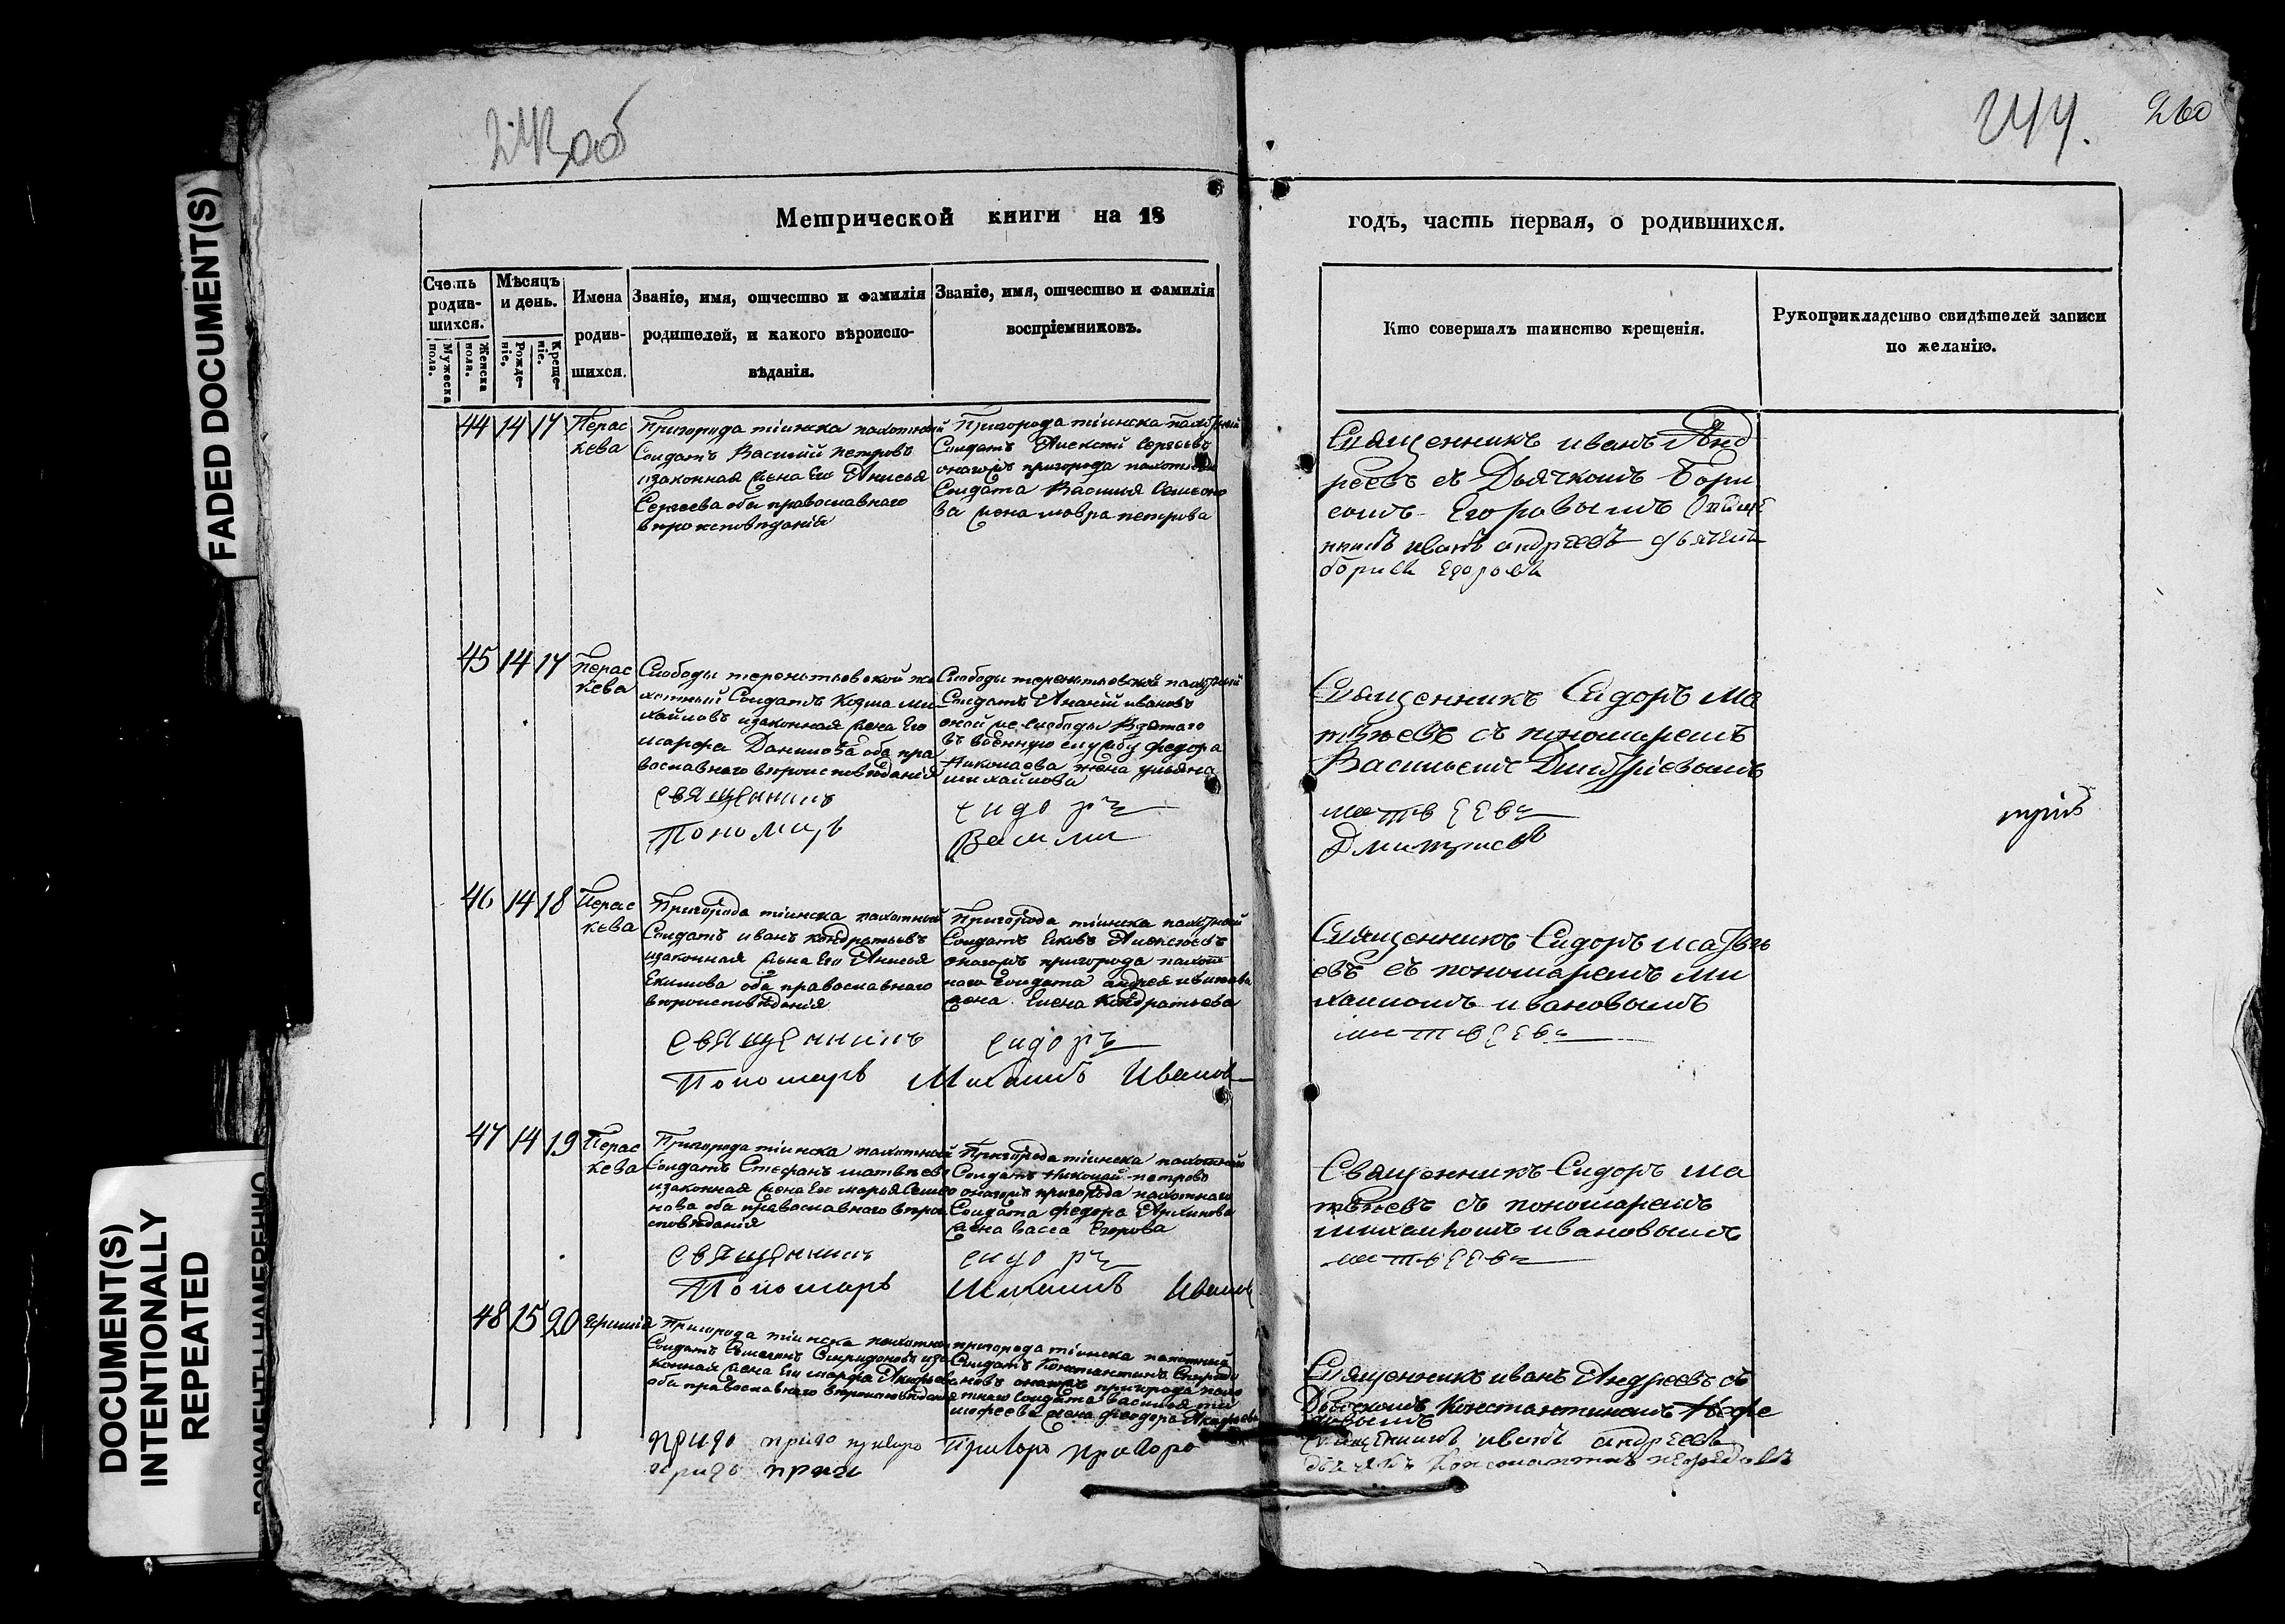 243 об
244.
260
FADED DOCUMENT(S)
DOCUMENT(S)
INTENTIONALLY
REPEATED
Метрической книги на 18
годъ, часть первая, о родившихся.
Счетъ
родив-
шихся.
Мужеска
пола.
Женска
пола.
Мѣсяцъ
и день.
Рожде-
ніе.
Креще-
ніе.
Имена
родив-
шихся.
Званіе, имя, отчество и фамилія
родителей, и какого вѣроиспо-
вѣданія.
Званіе, имя, отчество и фамилія
воспріемниковъ.
Кто совершалъ таинство крещенія.
Рукоприкладство свидѣтелей записи
по желанію.
44 14 17
Перас
кева
Пригорода тіинска пахотной
Солдатъ Василій петровъ
изаконная жена Его Анисья
Сергеева оба православнаго
вѣроисповѣданія
Пригорода тіинска пахотный
Солдатъ Алексѣй Сергеевъ
онагожъ пригорода пахотнаго
Солдата Василья Семено
ва жена мавра петрова
Священникъ иванъ Анд
реевъ съ Дьячкомъ Бори
сомъ Егоровымъ
иванъ андреевъ дьячекъ
борисъ егоровъ
45 14 17
Перас
кева
Слободы терентьевской па
хотный Солдатъ Козма ми
хайловъ изаконная жена Его
марфа Данилова оба пра
вославнаго вѣроисповѣданія
Слободы терентьевской пахотный
Солдатъ Ананій ивановъ
оной же слободы Взятаго
въ военную службу федора
Николаева жена ульяна
михайлова
Священникъ Сидоръ ма
твѣевъ съ пономаремъ
Васильемъ Дмитріевымъ
священникъ сидоръ матвеевъ
Пономарь Василий Дмитриевъ
46 14 18
Перас
кева
Пригорода тіинска пахотной
Солдатъ иванъ кондратьевъ
изаконная жена Его Анисья
Екимова оба православнаго
вѣроисповѣданія
Пригорода тіинска пахотной
Солдатъ Яковъ Алексѣевъ
онагожъ пригорода пахот
наго Солдата андрея
жена Елена Кондратьева
Священникъ Сидоръ матвѣ
евъ съ пономаремъ ми
хаиломъ ивановымъ
священникъ сидоръ матвеевъ
Пономарь Михаилъ Иванов
47 14 19
Перас
кева
Пригорода тіинска пахотной
Солдатъ Стефанъ матвѣевъ
изаконная жена Его марья Семе
нова оба православнаго вѣрои
сповѣданія
Пригорода тіинска пахотной
Солдатъ Николай петровъ
онагожъ пригорода пахотнаго
Солдата федора Архипова
жена васса Егорова
Священникъ Сидоръ ма
твѣевъ съ пономаремъ
михаиломъ ивановымъ
священникъ сидоръ матвеевъ
Пономарь Михаилъ Иванов
48 15 20
Пригорода тіинска пахотной
Солдатъ Семенъ Спиридоновъ иза
конная жена Его марфа
оба православнаго вѣроисповѣданія
пригорода тіинска пахотный
Солдатъ Константинъ Спиридо
новъ онагожъ пригорода пахо
тнаго Солдата василья ти
мофеева жена феодора
Священникъ иванъ Андреевъ съ
Дьячкомъ Константиномъ Нефе
довымъ
священникъ иванъ андреевъ
дьячекъ Константинъ нефедовъ
приго приго